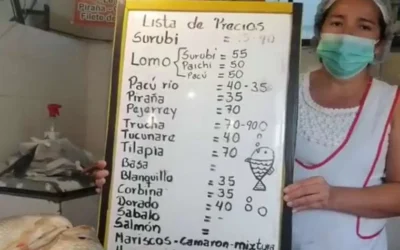 Piraña
Filete de
Lista de Precios
Surubi = 40
Lomo Surubi = 55
Paichi = 50
Pacú = 50
Pacú rio = 40-35
Piraña = 35
Pejerrey = 70
Trucha = 70-90
Tucunare = 40
Tilapia = 70
Basa =
Blanquillo = 35
Corbina = 35
Dorado = 40
Sabalo = -
Salmón =
Mariscos-camaron-mixtura